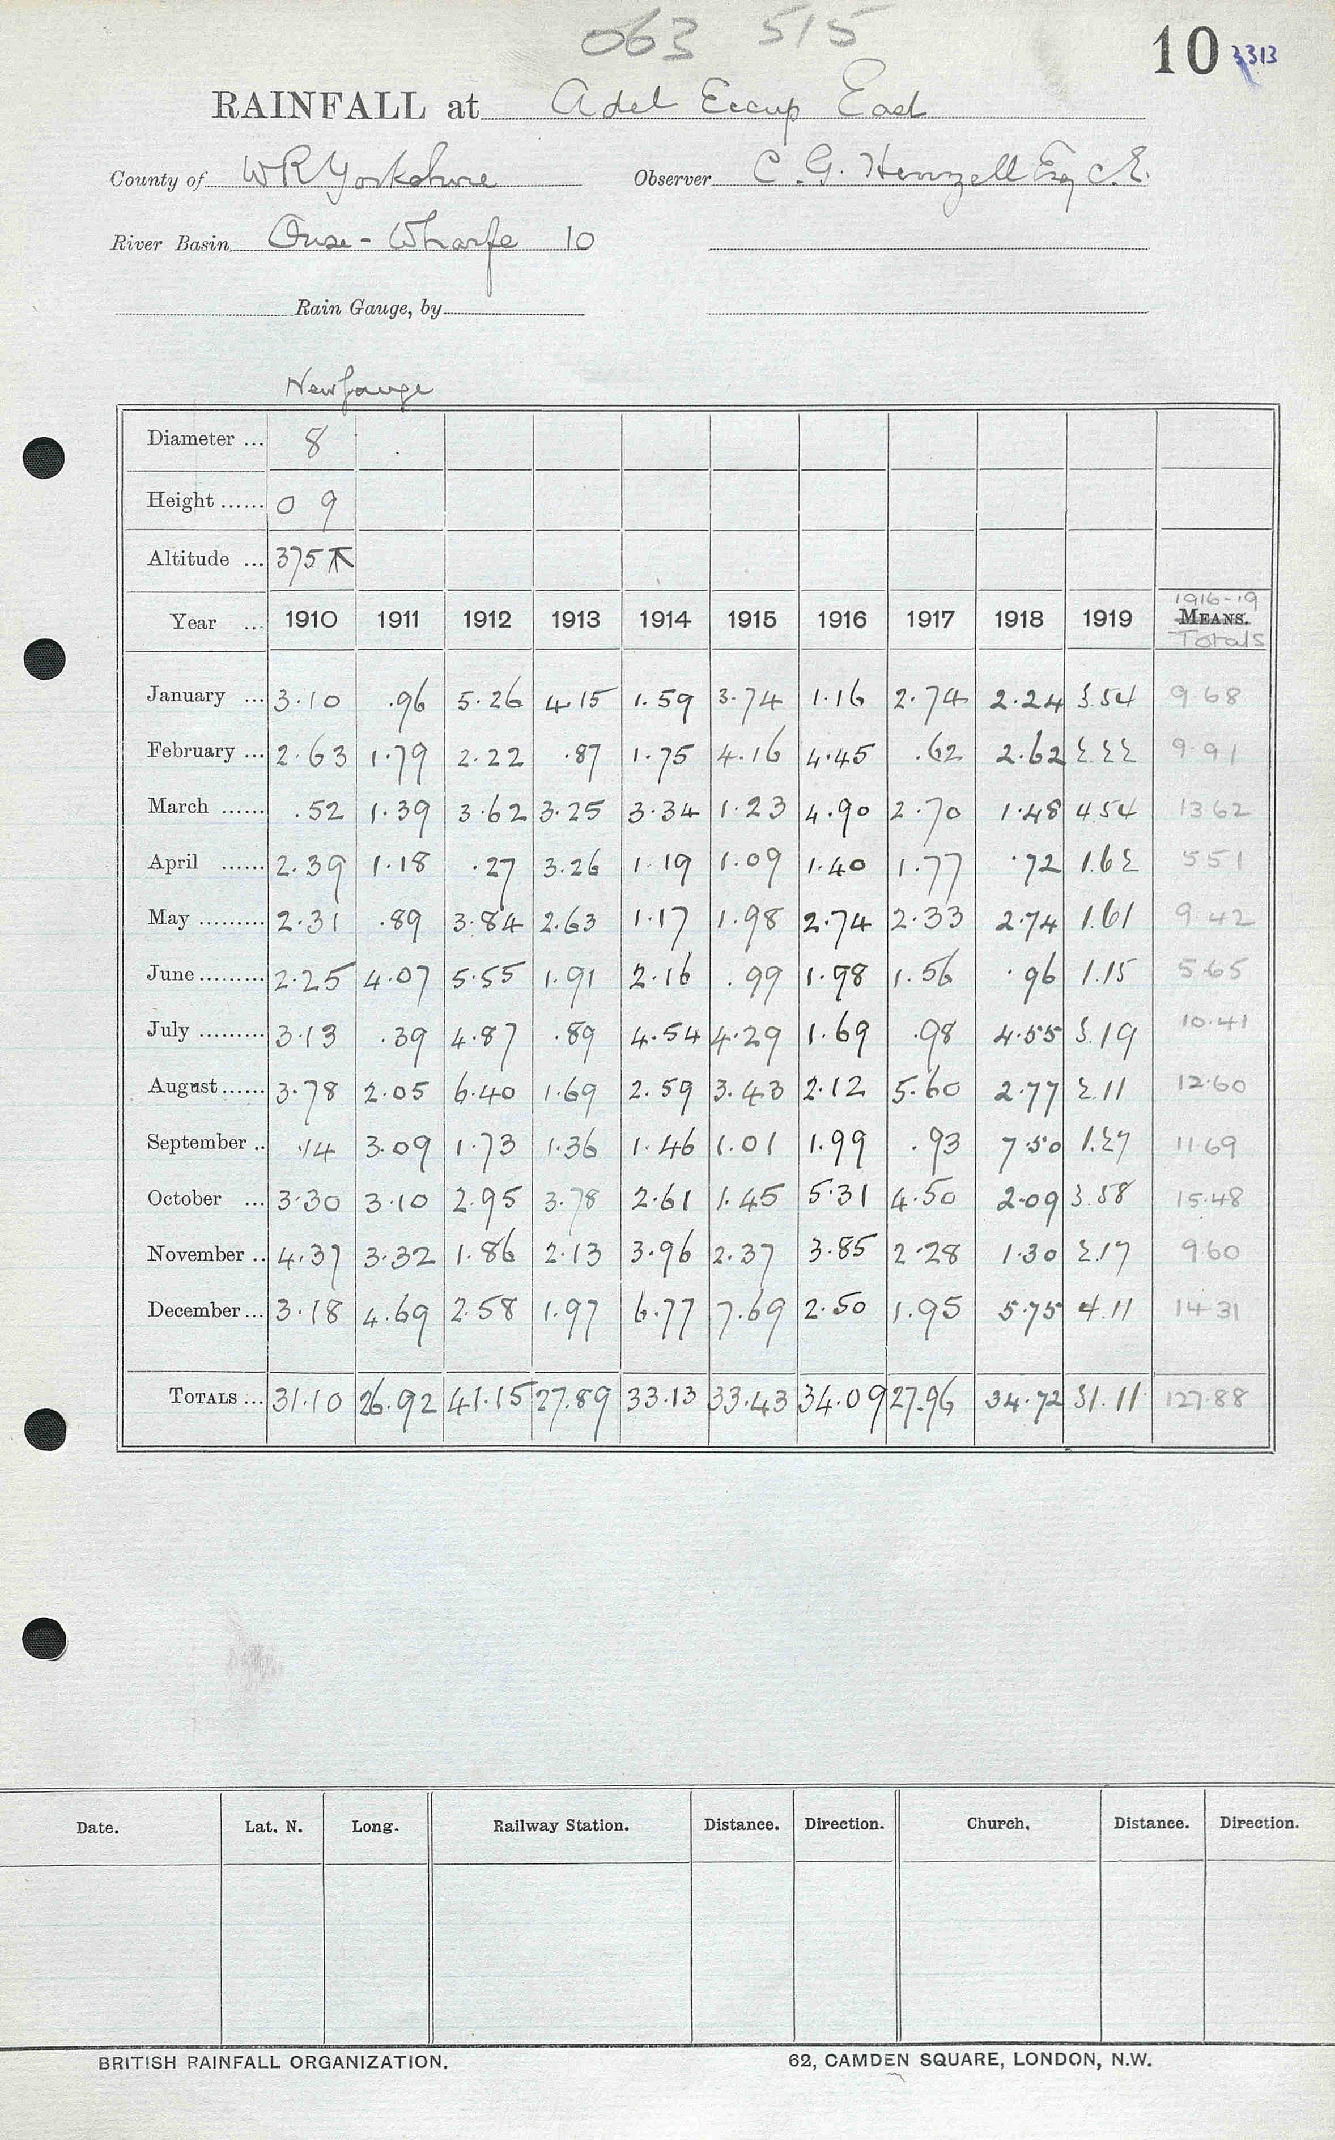 063 515
10 3313
RAINFALL at Adel Eccup East
County of WR Yorkshire Observer C. G. Henzell Esq C.E.
River Basin Ouse - Wharfe 10
Rain Gauge, by
New Gauge
Diameter ... 8
Height ...... 0 9
Altitude ... 375
1916-19
Year ... 1910 1911 1912 1913 1914 1915 1916 1917 1918 1919 MEANS.
Totals
January ... 3.10 .96 5.26 4.15 1.59 3.74 1.16 2.74 2.24 3.54 9.68
February ... 2.63 1.79 2.22 .87 1.75 4.16 4.45 .62 2.62 2.22 9.91
March ...... .52 1.39 3.62 3.25 3.34 1.23 4.90 2.70 1.48 4.54 13.62
April ...... 2.39 1.18 .27 3.26 1.19 1.09 1.40 1.77 .72 1.62 5.51
May ......... 2.31 .89 3.84 2.63 1.17 1.98 2.74 2.33 2.74 1.61 9.42
June ......... 2.25 4.07 5.55 1.91 2.16 .99 1.98 1.56 .96 1.15 5.65
July ......... 3.13 .39 4.87 .89 4.54 4.29 1.69 .98 4.55 3.19 10.41
August ...... 3.78 2.05 6.40 1.69 2.59 3.43 2.12 5.60 2.77 2.11 12.60
September .. .14 3.09 1.73 1.36 1.46 1.01 1.99 .93 7.50 1.27 11.69
October ... 3.30 3.10 2.95 3.78 2.61 1.45 5.31 4.50 2.09 3.58 15.48
November .. 4.37 3.32 1.86 2.13 3.96 2.37 3.85 2.28 1.30 2.17 9.60
December ... 3.18 4.69 2.58 1.97 6.77 7.69 2.50 1.95 5.75 4.11 14.31
TOTALS ... 31.10 26.92 41.15 27.89 33.13 33.43 34.09 27.96 34.72 31.11 127.88
Date. Lat. N. Long. Railway Station. Distance. Direction. Church. Distance. Direction.
BRITISH RAINFALL ORGANIZATION. 62, CAMDEN SQUARE, LONDON, N.W.